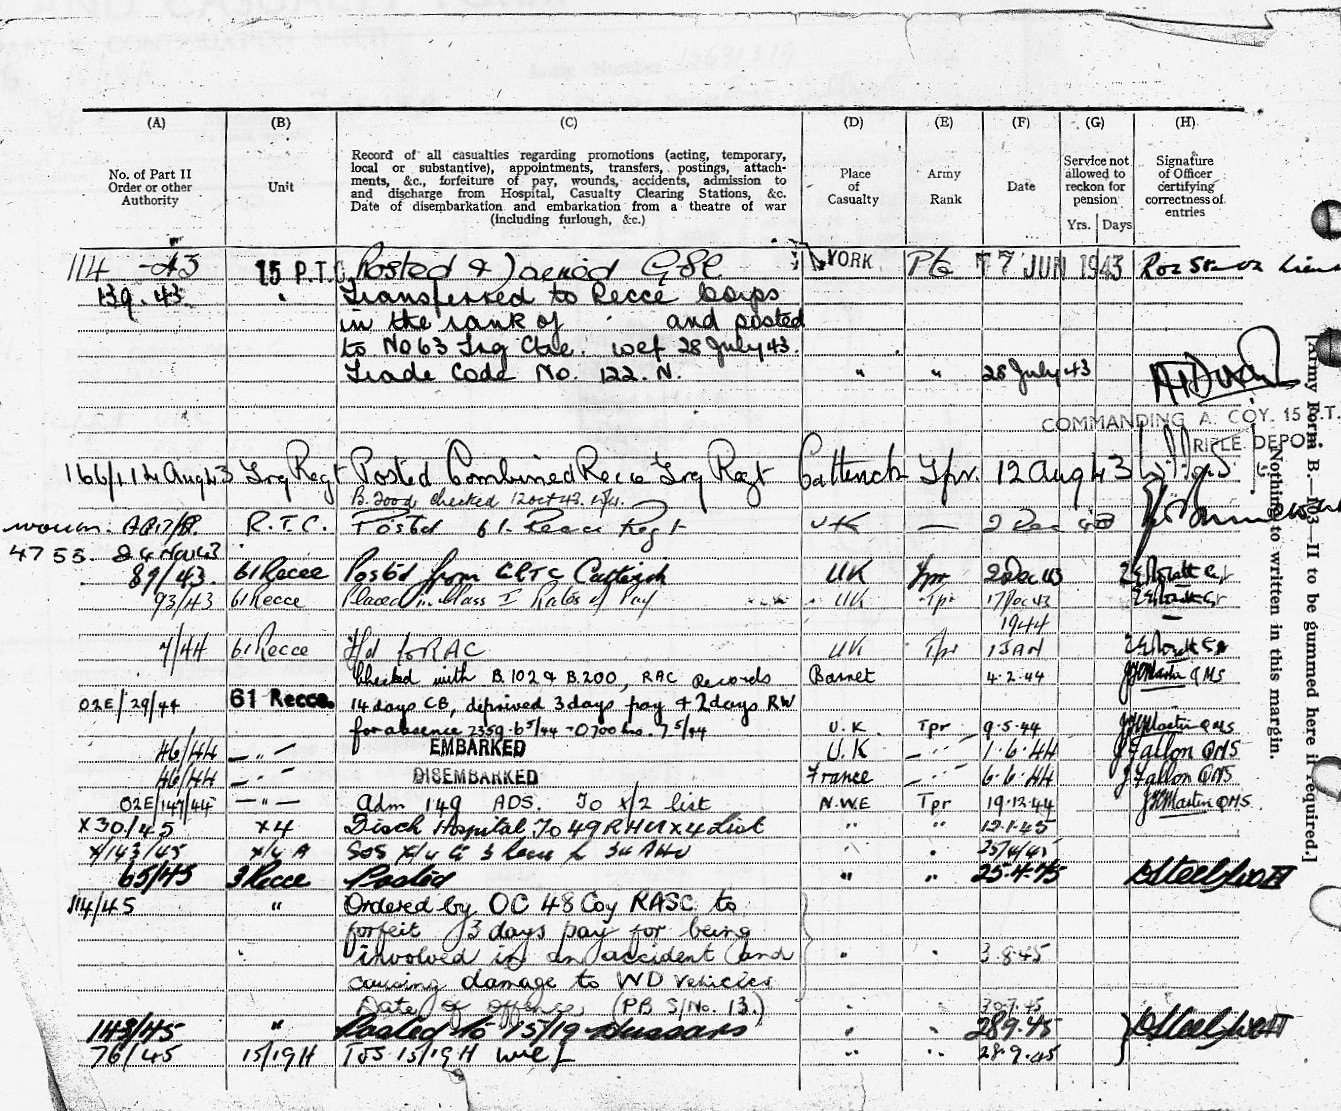 (A) (B) (C) (D) (E) (F) (G) (H)
No. of Part II Order or other Authority
Unit
Record of all casualties regarding promotions (acting, temporary,
local or substantive), appointments, transfers, postings, attach-
ments, &c., forfeiture of pay, wounds, accidents, admission to
and discharge from Hospital, Casualty Clearing Stations, &c.
Date of disembarkation and embarkation from a theatre of war
(including furlough, &c.)
Place of Casualty
Army Rank
Date
Service not allowed to reckon for pension
Yrs. Days
Signature of Officer certifying correctness of entries
114 -43 15 P.T.C. Posted & Joined GSC YORK Pte 7 JUN 1943
139.43. " Transferred to Recce Corps
in the rank of and posted
to No 63 Trg Ctre. wef 28 July 43.
Trade Code No. 122. N. " " 28 July 43
COMMANDING A. COY. 15 P.T.
RIFLE DEPOT
166/1 12 Aug 43 Trg Regt Posted Combined Recce Trg Regt Catterick Tpr. 12 Aug 43
B.200b checked 12 Oct 43.
R.T.C. Posted 61. Recce Regt UK — 2 Dec 43
4755. 24 Nov 43
89/43. 61 Recce Posted from CRTC Catterick UK Tpr 2 Dec 43
93/43 61 Recce Placed in Class I Rates of Pay UK Tpr 17 Dec 43
1944
7/44 61 Recce Tfd to RAC UK Tpr 1 JAN
Checked with B.102 & B.200, RAC Records Barnet 4.2.44 Martin QMS
02E/29/44 61 Recce. 14 days CB, deprived 3 days pay & 2 days RW
for absence 2359-6 5/44 - 0700 hrs. 7 5/44 U.K. Tpr 9.5.44 Martin QMS
46/44 — " — EMBARKED U.K — " — 1.6.44 J Fallon QMS
46/44 — " — DISEMBARKED France — " — 6.6.44 J Fallon QMS
02E/147/44 — " — Adm 149 ADS. To X/2 list N.W.E Tpr 19.12.44 Martin QMS
X30/45 X4 Disch Hospital To 49 RHU X4 List " " 12.1.45
X/143/45 X/4 A SOS X/4 3 Recce " 25/4/45
65/45 3 Recce Posted " " 25.4.45 D Steel
114/45 " Ordered by OC 48 Coy RASC to
forfeit 3 days pay for being
involved in an accident and " " 3.8.45
causing damage to WD vehicles
Date of offence (PB S/No. 13.)
143/45 " Posted to 15/19 Hussars " " 28.9.45 D Steel
76/45 15/19 H TOS 15/19 H wef " " 28.9.45
[Army Form B. 103—II to be gummed here if required.]
Nothing to be written in this margin.